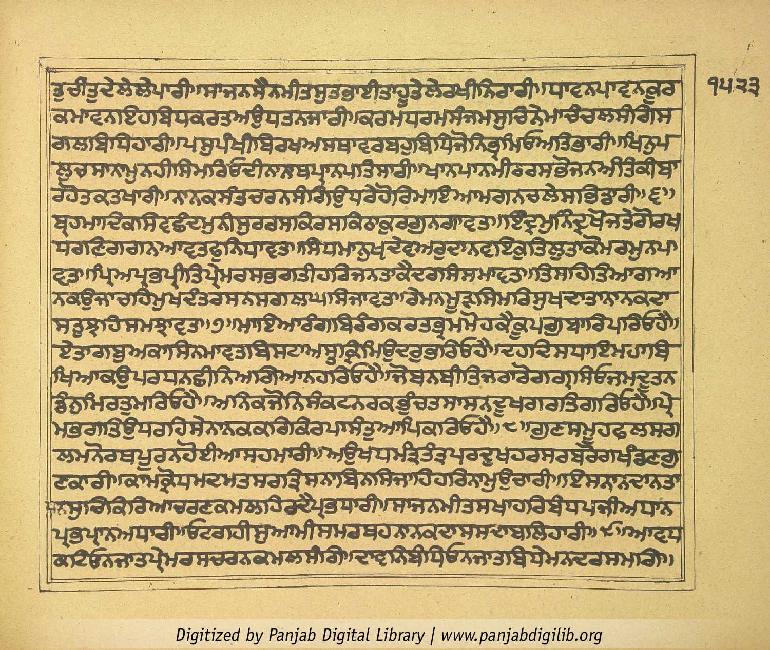 ਤੁਚਿੰਤੁਦੇਲੇਲੇਪਾਰੀ॥ਸਾਜਨਸੈਨਮੀਤਸੁਤਭਾਈਤਾਹੂਤੇਲੇਰਖੀਨਿਰਾਰੀ॥ਧਾਵਨਪਾਵਨਕੂਰ
ਕਮਾਵਨਇਹਬਿਧਿਕਰਤਅਉਧਤਨਜਾਰੀ॥ਕਰਮਧਰਮਸੰਜਮਸੁਚਨੇਮਾਚੰਚਲਸੰਗਿਸ
ਗਲਬਿਧਿਹਾਰੀ॥ਪਸੁਪੰਖੀਬਿਰਖਅਸਥਾਵਰਬਹੁਬਿਧਿਜੋਨਿਭ੍ਰਮਿਓਅਤਿਭਾਰੀ॥ਖਿਨੁਪ
ਲੁਚਸਾਨਾਮੁਨਹੀਸਿਮਰਿਓਦੀਨਾਨਾਥਪ੍ਰਾਨਪਤਿਸਾਰੀ॥ਖਾਨਪਾਨਮੀਠਰਸਭੋਜਨਅੰਤਿਕੀਬਾ
ਰਹੋਤਕਤਖਾਰੀ॥ਨਾਨਕਸੰਤਚਰਨਸੰਗਿਉਧਰੇਹੋਰਿਮਾਇਆਮਗਨਚਲੇਸਭਿਡਾਰੀ॥੬॥
ਬ੍ਰਹਮਾਦਿਕਸਿਵਛੰਦਮੁਨੀਸੁਰਰਸਕਿਰਸਕਿਠਾਕੁਰਗੁਨਗਾਵਤ॥ਇੰਦ੍ਰਮੁਨਿੰਦ੍ਰਖੋਜਤੇਗੋਰਖ
ਧਰਣਿਗਗਨਆਵਤਫੁਨਿਧਾਵਤ॥ਸਿਧਮਾਨੁਖੵਦੇਵਅਰੁਦਾਨਵਇਕੁਤਿਲੁਤਾਕੋਮਰਮੁਨਪਾ
ਵਤ॥ਪ੍ਰਿਅਪ੍ਰਭਪ੍ਰੀਤਿਪ੍ਰੇਮਰਸਭਗਤੀਹਰਿਜਨਤਾਕੈਦਰਸਿਸਮਾਵਤ॥ਤਿਸਹਿਤਿਆਗਿਆ
ਨਕਉਜਾਚਹਿਮੁਖਦੰਤਰਸਨਸਗਲਘਸਿਜਾਵਤ॥ਰੇਮਨਮੂੜਸਿਮਰਿਸੁਖਦਾਤਾਨਾਨਕਦਾ
ਸਤੁਝਹਿਸਮਝਾਵਤ॥੭॥ਮਾਇਆਰੰਗਬਿਰੰਗਕਰਤਭ੍ਰਮਮੋਹਕੈਕੂਪਗੁਬਾਰਿਪਰਿਓਹੈ॥
ਏਤਾਗਬੁਅਕਾਸਿਨਮਾਵਤਬਿਸਟਾਅਸ੍ਤਕ੍ਰਿਮਿਉਦਰੁਭਰਿਓਹੈ॥ਦਹਦਿਸਧਾਇਮਹਾਬਿ
ਖਿਆਕਉਪਰਧਨਛੀਨਿਅਗਿਆਨਹਰਿਓਹੈ॥ਜੋਬਨਬੀਤਿਜਰਾਰੋਗਗ੍ਰਸਿਓਜਮਦੂਤਨ
ਡੰਨੁਮਿਰਤੁਮਰਿਓਹੈ॥ਅਨਿਕਜੋਨਿਸੰਕਟਨਰਕਭੁੰਚਤਸਾਸਨਦੂਖਗਰਤਿਗਰਿਓਹੈ॥ਪ੍ਰੇ
ਮਭਗਤਿਉਧਰਹਿਸੇਨਾਨਕਕਰਿਕਿਰਪਾਸੰਤੁਆਪਿਕਰਿਓਹੈ॥੮॥ਗੁਣਸਮੂਹਫਲਸਗ
ਲਮਨੋਰਥਪੂਰਨਹੋਈਆਸਹਮਾਰੀ॥ਅਉਖਧਮੰਤ੍ਰਤੰਤ੍ਰਪਰਦੁਖਹਰਸਰਬਰੋਗਖੰਡਣਗੁ
ਣਕਾਰੀ॥ਕਾਮਕ੍ਰੋਧਮਦਮਤਸਰਤ੍ਰਿਸਨਾਬਿਨਸਿਜਾਹਿਹਰਿਨਾਮੁਉਚਾਰੀ॥ਇਸਨਾਨਦਾਨਤਾ
ਪਨਸੁਚਿਕਿਰਿਆਚਰਣਕਮਲਹਿਰਦੈਪ੍ਰਭਧਾਰੀ॥ਸਾਜਨਮੀਤਸਖਾਹਰਿਬੰਧਪਜੀਅਧਾਨ
ਪ੍ਰਭਪ੍ਰਾਨਅਧਾਰੀ॥ਓਟਗਹੀਸੁਆਮੀਸਮਰਥਹਨਾਨਕਦਾਸਸਦਾਬਲਿਹਾਰੀ॥੯॥ਆਵਧ
ਕਟਿਓਨਜਾਤਪ੍ਰੇਮਰਸਚਰਨਕਮਲਸੰਗਿ॥ਦਾਵਨਿਬੰਧਿਓਨਜਾਤਬਿਧੇਮਨਦਰਸਮਗਿ॥
੧੫੨੩
Digitized by Panjab Digital Library | www.panjabdigilib.org